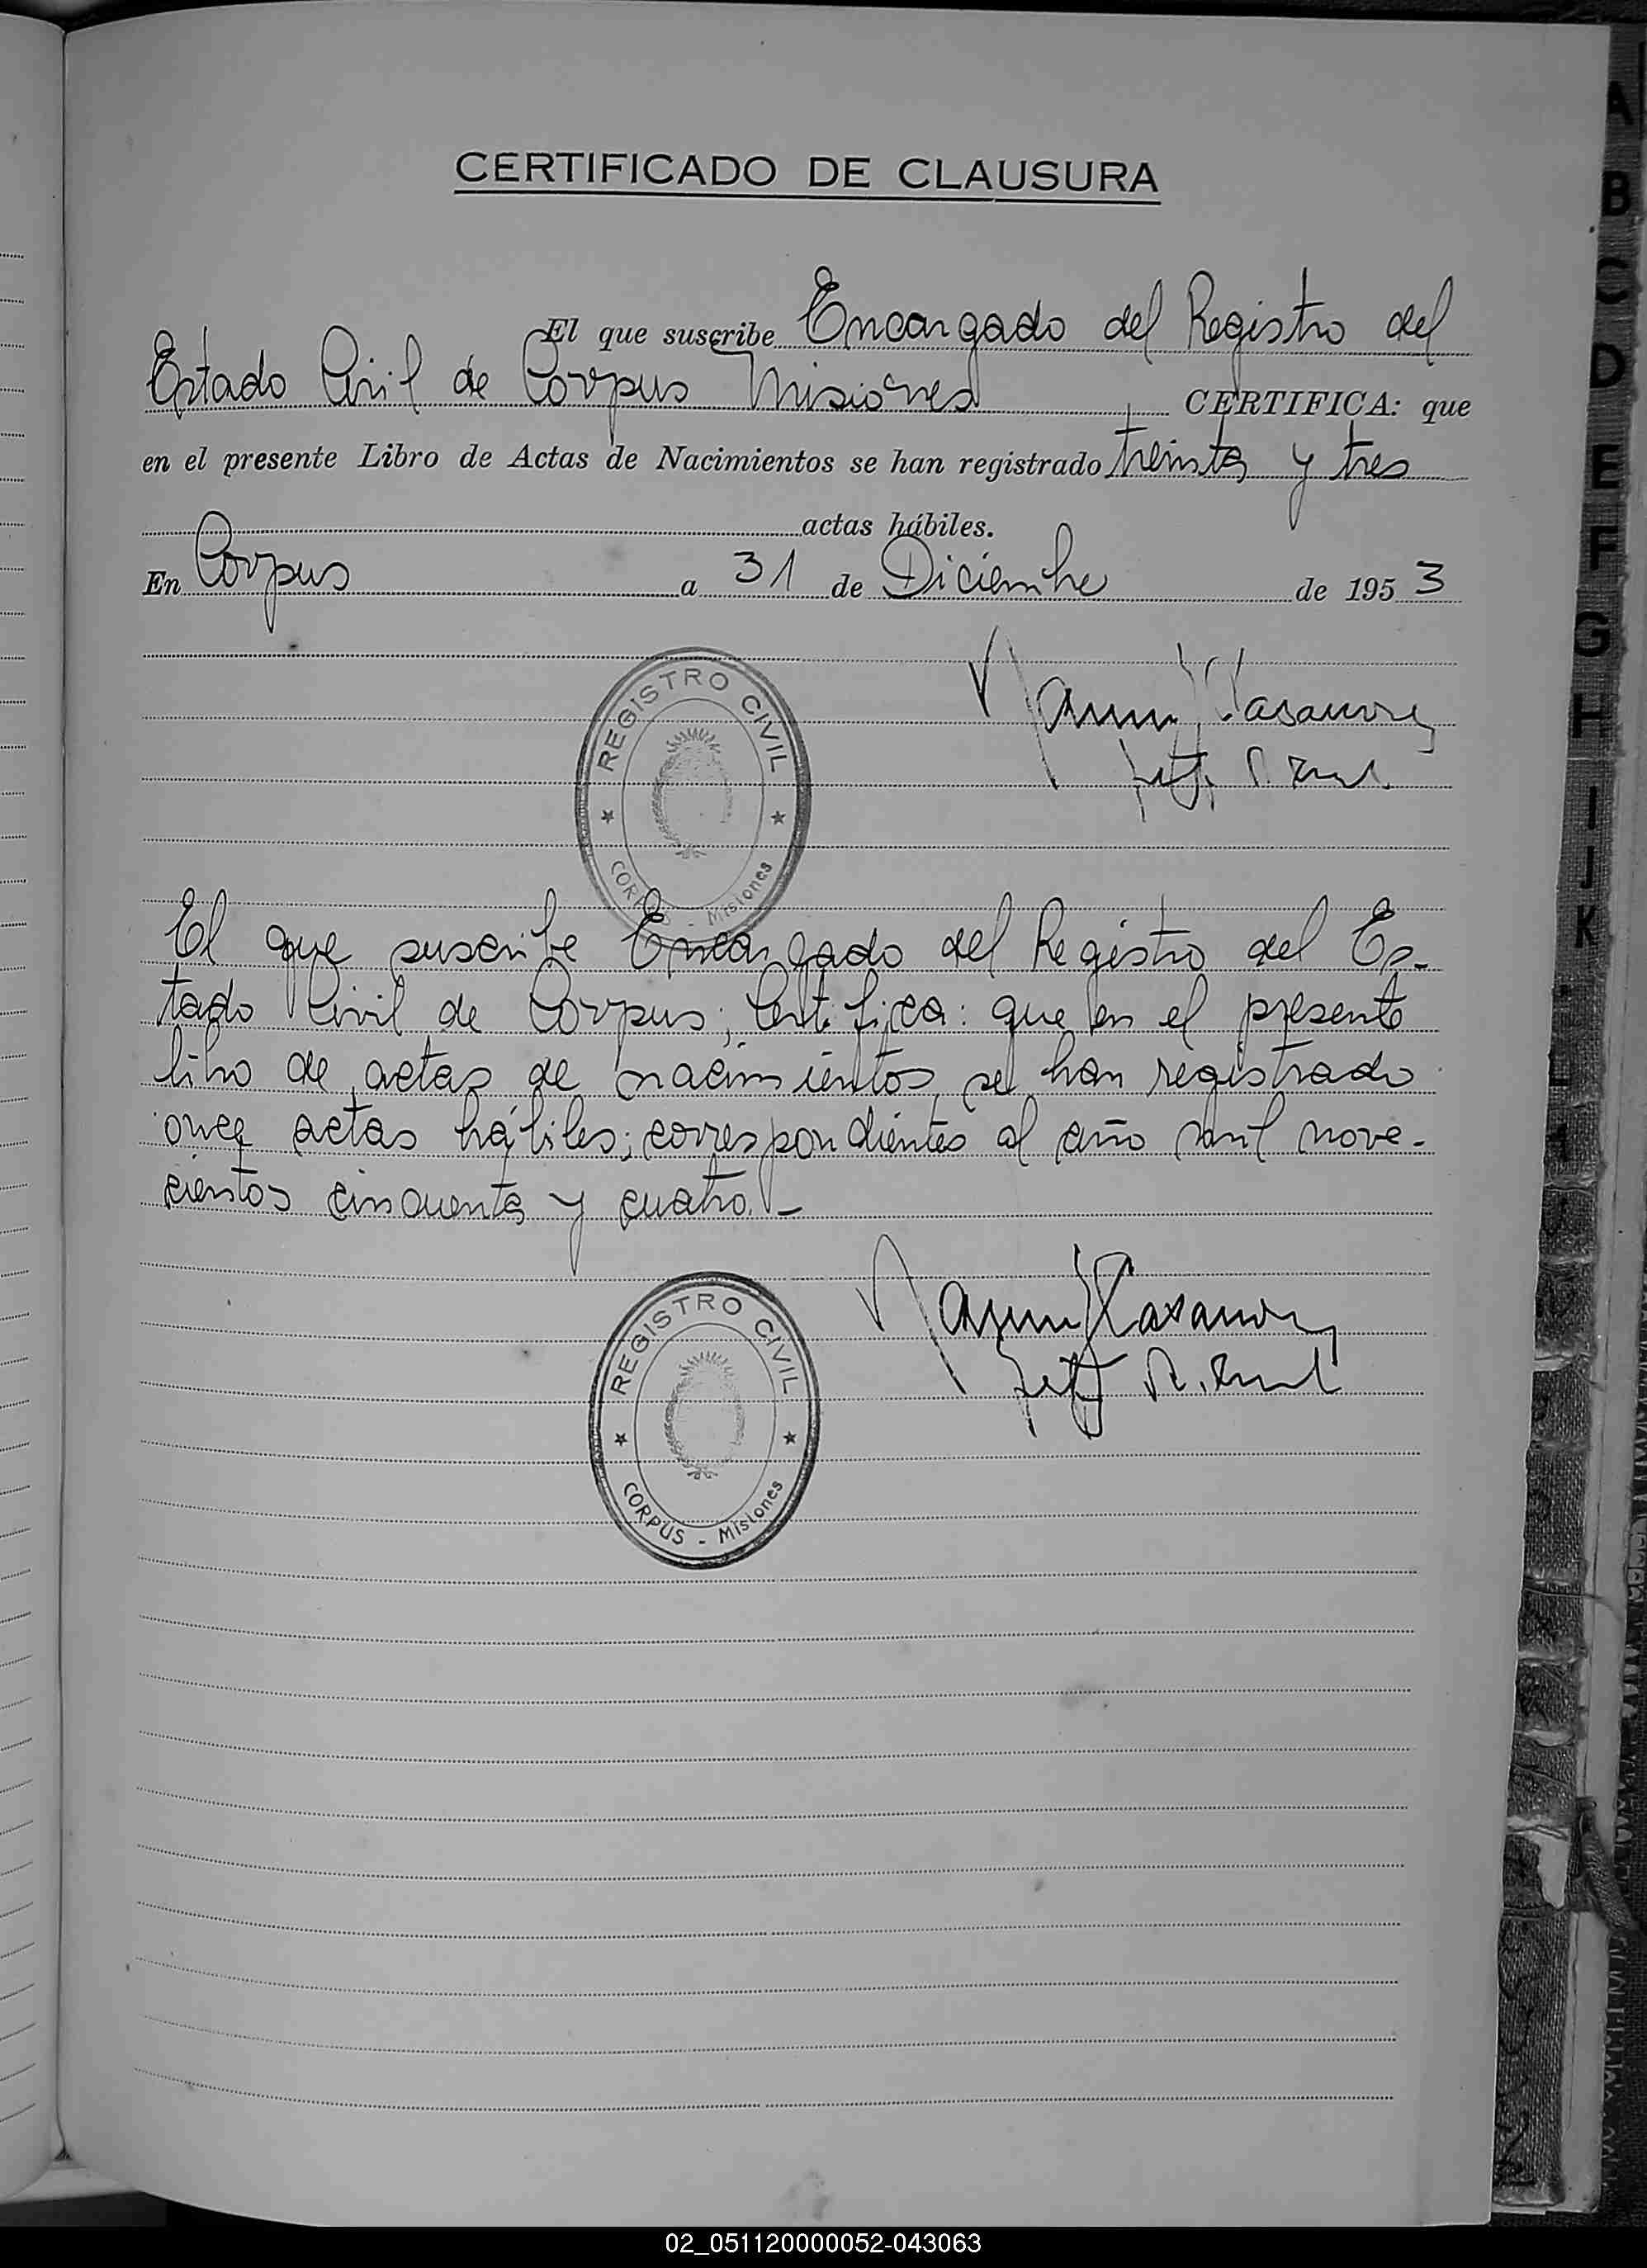 CERTIFICADO DE CLAUSURA
El que suscribe Encargado del Registro del
Estado Civil de Corpus Misiones CERTIFICA: que
en el presente Libro de Actas de Nacimientos se han registrado treinta y tres
actas hábiles.
En Corpus a 31 de Diciembre de 1953
REGISTRO CIVIL
CORPUS - Misiones
Casanova
El que suscribe Encargado del Registro del Es-
tado Civil de Corpus; Certifica: que en el presente
libro de actas de nacimientos, se han registrado
once actas hábiles; correspondientes al año mil nove-
cientos cincuenta y cuatro. -
Casanova
REGISTRO CIVIL
CORPUS - Misiones
A
B
C
D
E
F
G
H
I
J
K
02_051120000052-043063